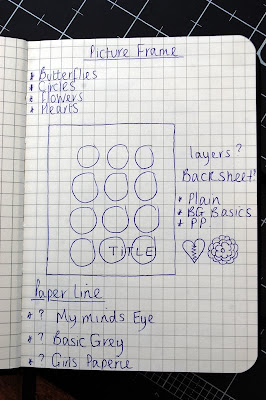 Picture Frame
* Butterflies
* Circles
* Flowers
* Hearts
layers?
Backsheet?
* Plain
* BG Basics
* PP
TITLE
Paper Line
* ? My minds Eye
* ? Basic Grey
* ? Girls Paperie